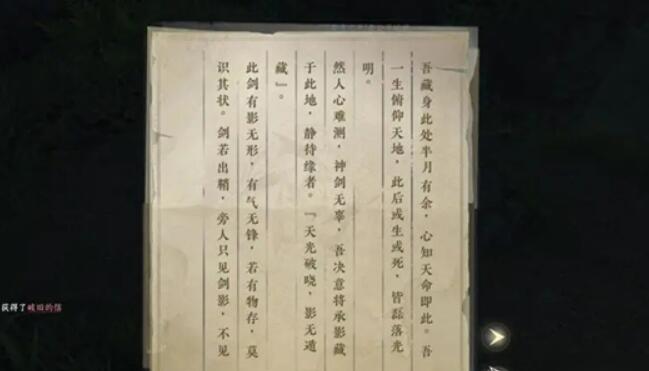 吾藏身此处半月有余，心知天命即此。吾
一生俯仰天地，此后或生或死，皆磊落光
明。
然人心难测，神剑无辜，吾决意将承影藏
于此地，静待缘者。「天光破晓，影无遁
藏」。
此剑有影无形，有气无锋，若有物存，莫
识其状。剑若出鞘，旁人只见剑影，不见
获得了破旧的信